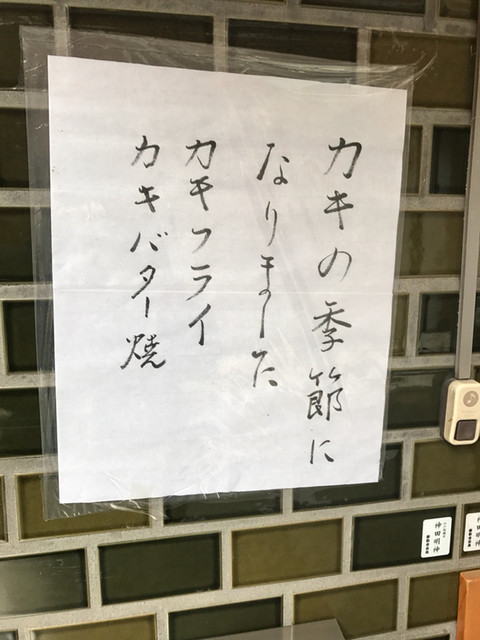 カキの季節に
なりました
カキフライ
カキバター焼
神田明神
神田明神